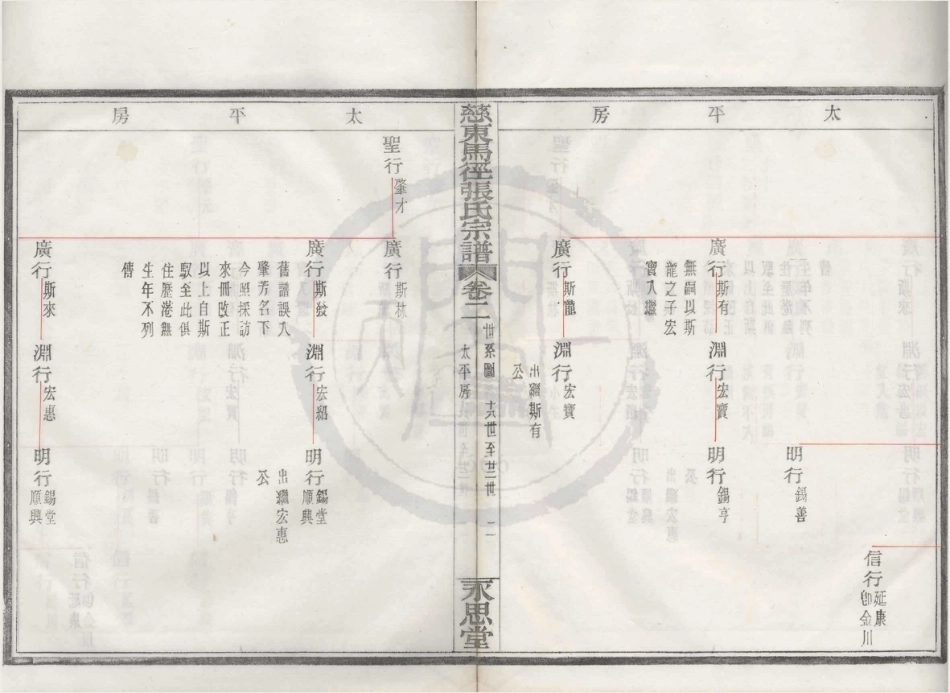 太平房
信行 延康 卽金川
明行 錫善
廣行 斯有
無嗣以斯
龍之子宏
寶入繼
淵行 宏寶
明行 錫亨
廣行 斯龍
淵行 宏寶
出繼斯有
公
慈東馬徑張氏宗譜
卷二
世系圖 十八世至廿二世
太平房
二
永思堂
太平房
聖行 肇才
廣行 斯林
廣行 斯發
舊譜誤入
肇芳名下
今照採訪
來冊改正
以上自斯
馭至此俱
住歷港無
生年不列
傳
淵行 宏紹
明行 錫堂 順興
出繼宏惠
公
廣行 斯來
淵行 宏惠
明行 錫堂 順興